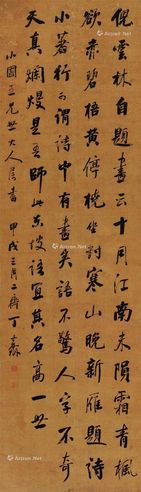 倪雲林自題畫云十月江南未隕霜青楓
欲赤碧梧黃停橈坐對寒山晚新雁題詩
小著行可謂詩中有畫矣語不驚人字不奇
天真爛熳是吾師此東坡語宜其名高一世
小園三兄世大人屬書 甲戌三月二樵丁